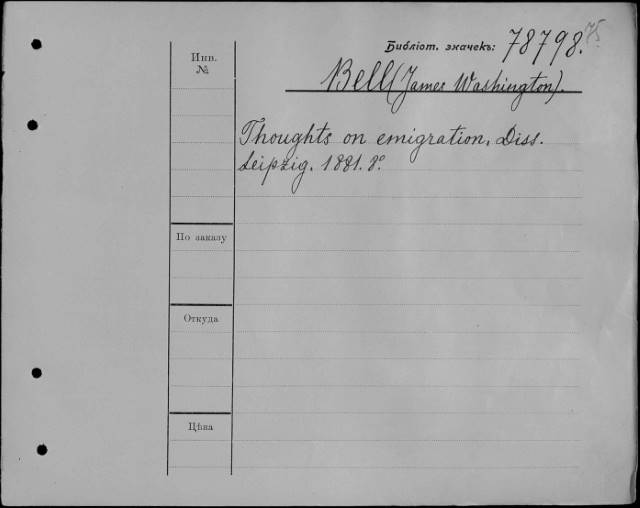 Библіот. значекъ: 78798. 75.
Инв.
№
Bell (James Washington).
Thoughts on emigration. Diss.
Leipzig. 1881. 8º
По заказу
Откуда
Цѣна